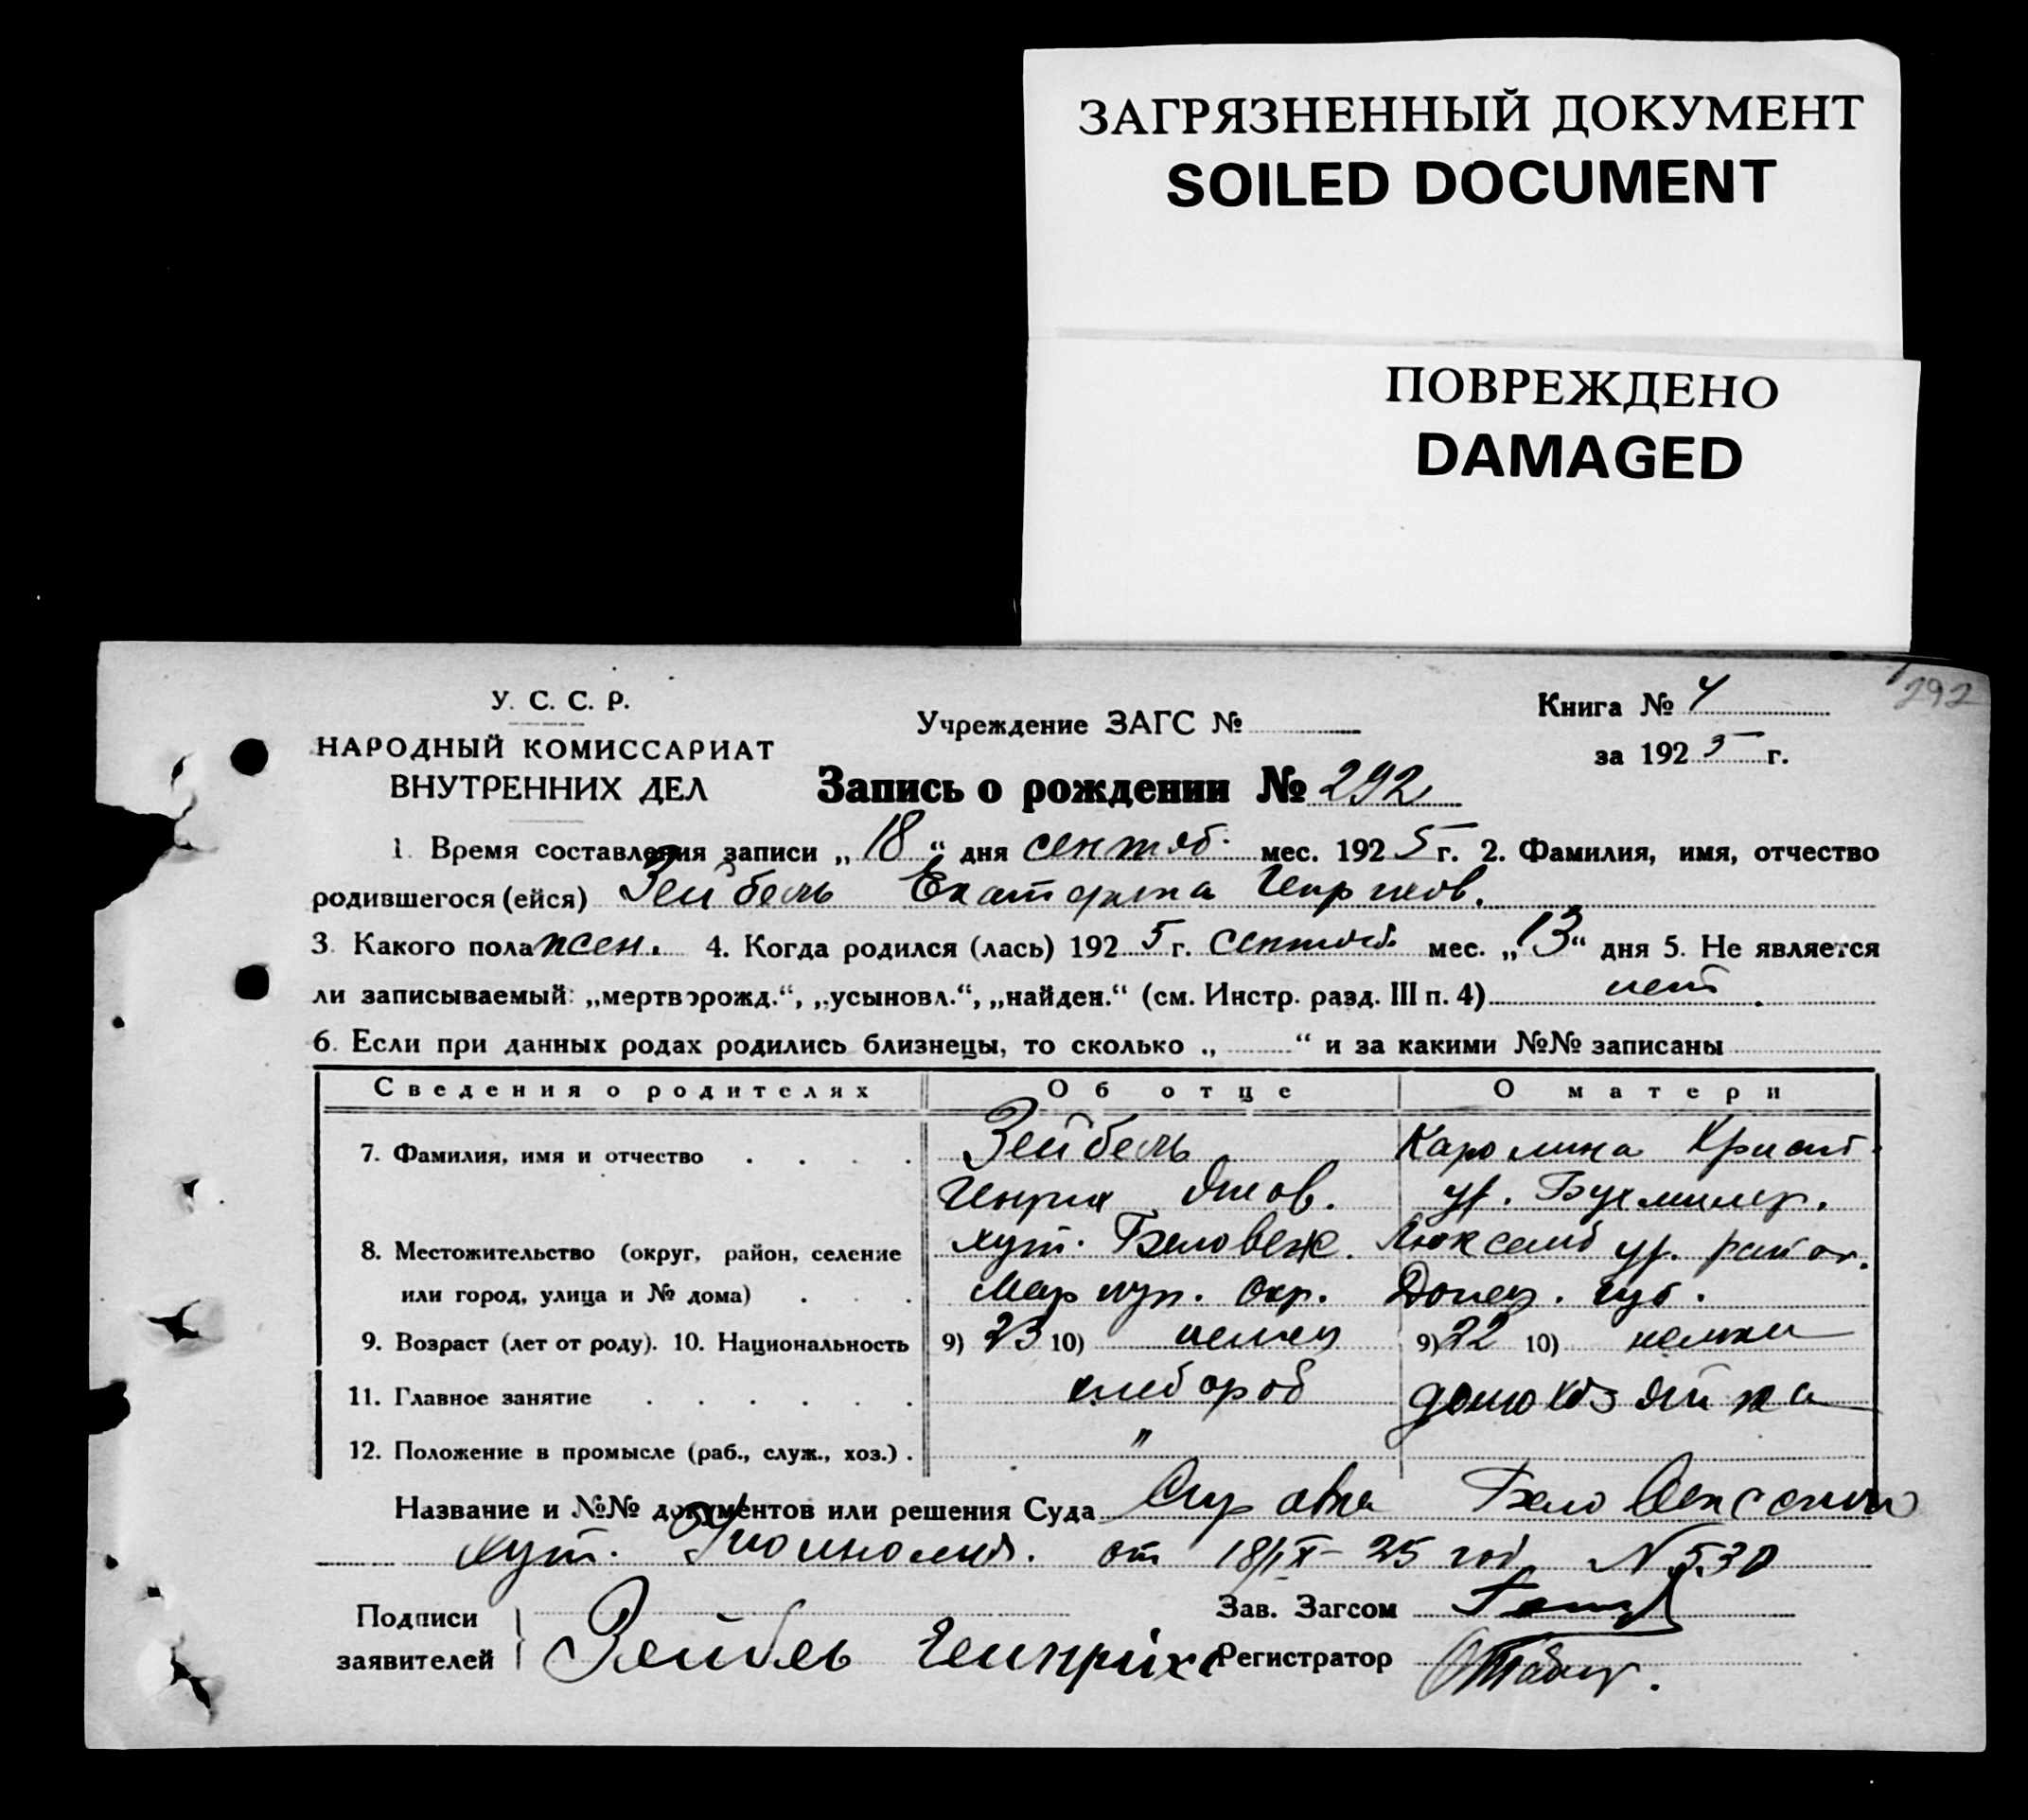 ЗАГРЯЗНЕННЫЙ ДОКУМЕНТ
SOILED DOCUMENT
ПОВРЕЖДЕНО
DAMAGED
292
У. С. С. Р.
НАРОДНЫЙ КОМИССАРИАТ
ВНУТРЕННИХ ДЕЛ
Учреждение ЗАГС №
Книга № 4
за 1925 г.
Запись о рождении № 292
1. Время составления записи „18“ дня сентяб. мес. 1925 г. 2. Фамилия, имя, отчество
родившегося (ейся) Зейбель Екатерина Генрихов.
3. Какого пола жен. 4. Когда родился (лась) 1925 г. сентяб. мес. „13“ дня 5. Не является
ли записываемый: „мертворожд.“, „усыновл.“, „найден.“ (см. Инстр. разд. III п. 4) нет
6. Если при данных родах родились близнецы, то сколько „ “ и за какими №№ записаны
Сведения о родителях Об отце О матери
7. Фамилия, имя и отчество Зейбель Каролина Христ.
Генрих Яков. ур. Бухмиллер.
8. Местожительство (округ, район, селение хут. Беловеж. Люксемб ур. район.
или город, улица и № дома) Мариуп. окр. Донец. губ.
9. Возраст (лет от роду). 10. Национальность 9) 23 10) немец 9) 22 10) немка
11. Главное занятие хлебороб домохозяйка
12. Положение в промысле (раб., служ., хоз.) "
Название и №№ документов или решения Суда Справка
хут. от 18/IX-25 год N 530
Подписи
заявителей Зейбель Генрих
Зав. Загсом
Регистратор